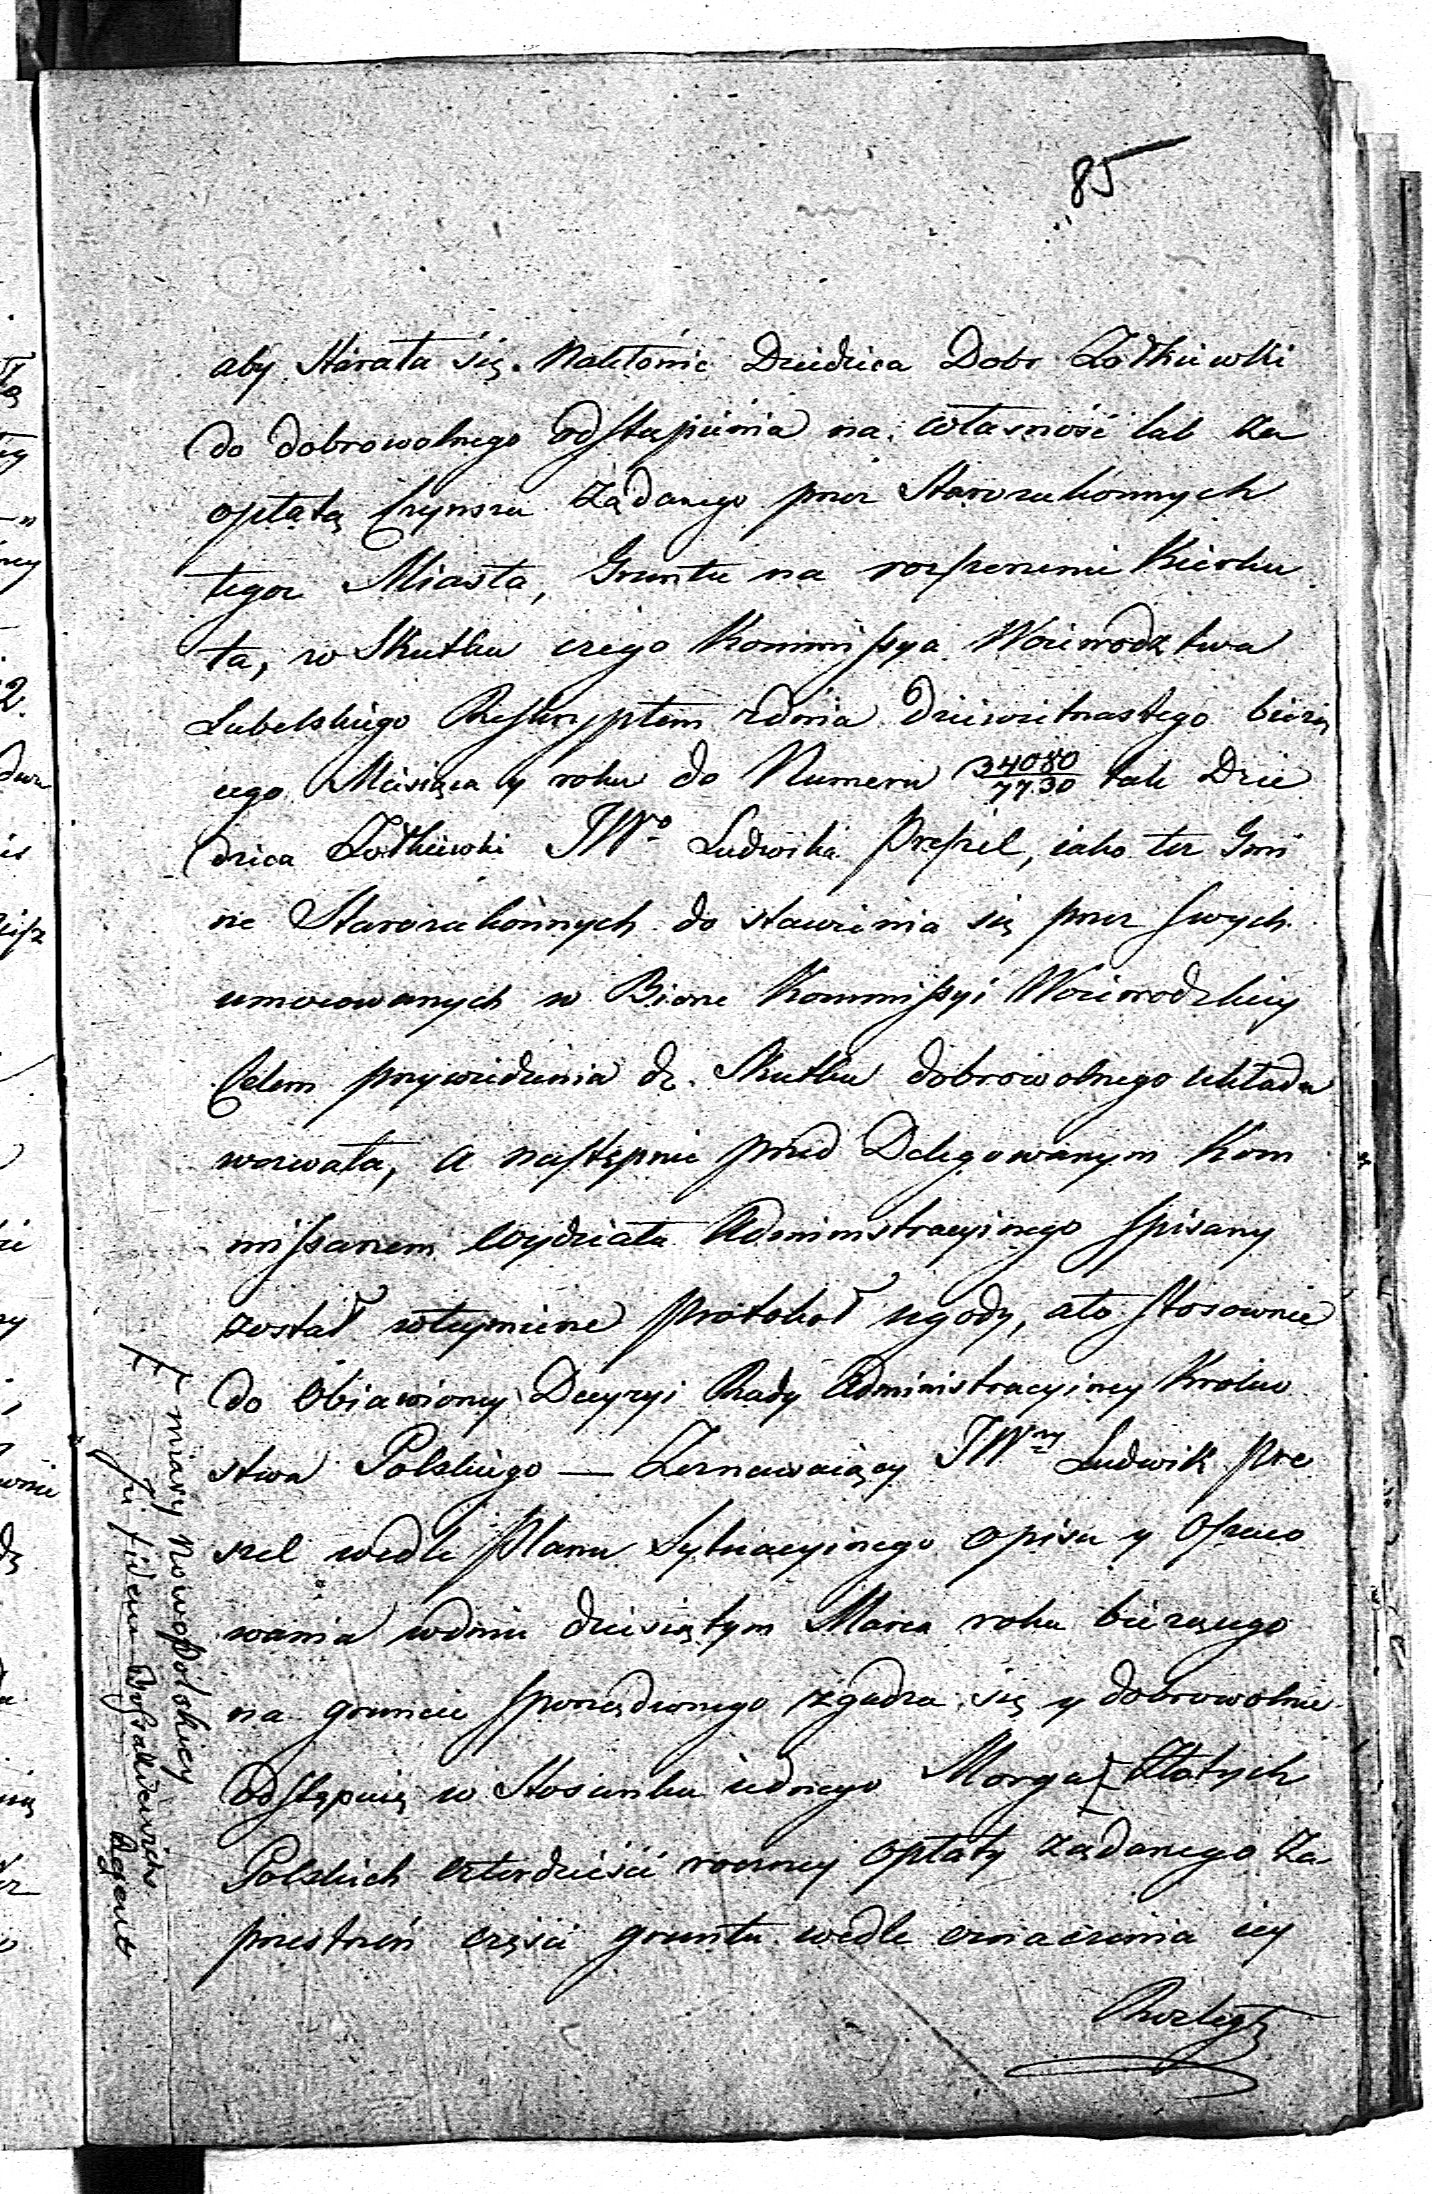 85
aby starała się nakłonić Dziedzica Dobr Żołkiewki
do dobrowolnego odstąpienia na własność lub za
opłatą Czynszu żądanego przez Starozakonnych
tegoż Miasta, Gruntu na rozszerzenie Kierku
ta, w skutku czego Kommissya Woiewodztwa
Lubelskiego Reskryptem zdnia dziewiętnastego bieżą
cego Miesiąca y roku do Numeru 34080/7730 tak Dzie
dzica Żołkiewki JWo Ludwika Preszel, iako też Gmi
nę Starozakonnych do stawienia się przez swych
umocowanych w Biorze Kommissyi Woiewodzkiey
Celem przywiedzenia do Skutku dobrowolnego układu
wezwała, a następnie przed Delegowanym Kom
missarzem Wydziału Administracyinego spisany
został wtymże protokoł ugody, a to stosownie
do Obiawioney Decyzyi Rady Administracyiney Krolew
stwa Polskiego — Zeznawaiący JWny Ludwik Pre
szel wedle planu Sytuacyinego opisu y Opraco
wania wdniu dziesiątym Marca roku bieżącego
na gruncie sporządzonego zgadza się y dobrowolnie
odstępuie w stosunku iednego Morga Złotych
Polskich czterdzieści roczney Opłaty żądanego za
przestrzeń części gruntu wedle oznaczenia iey
Rozległ
miary Nowopolskiey
In fidem
Regent